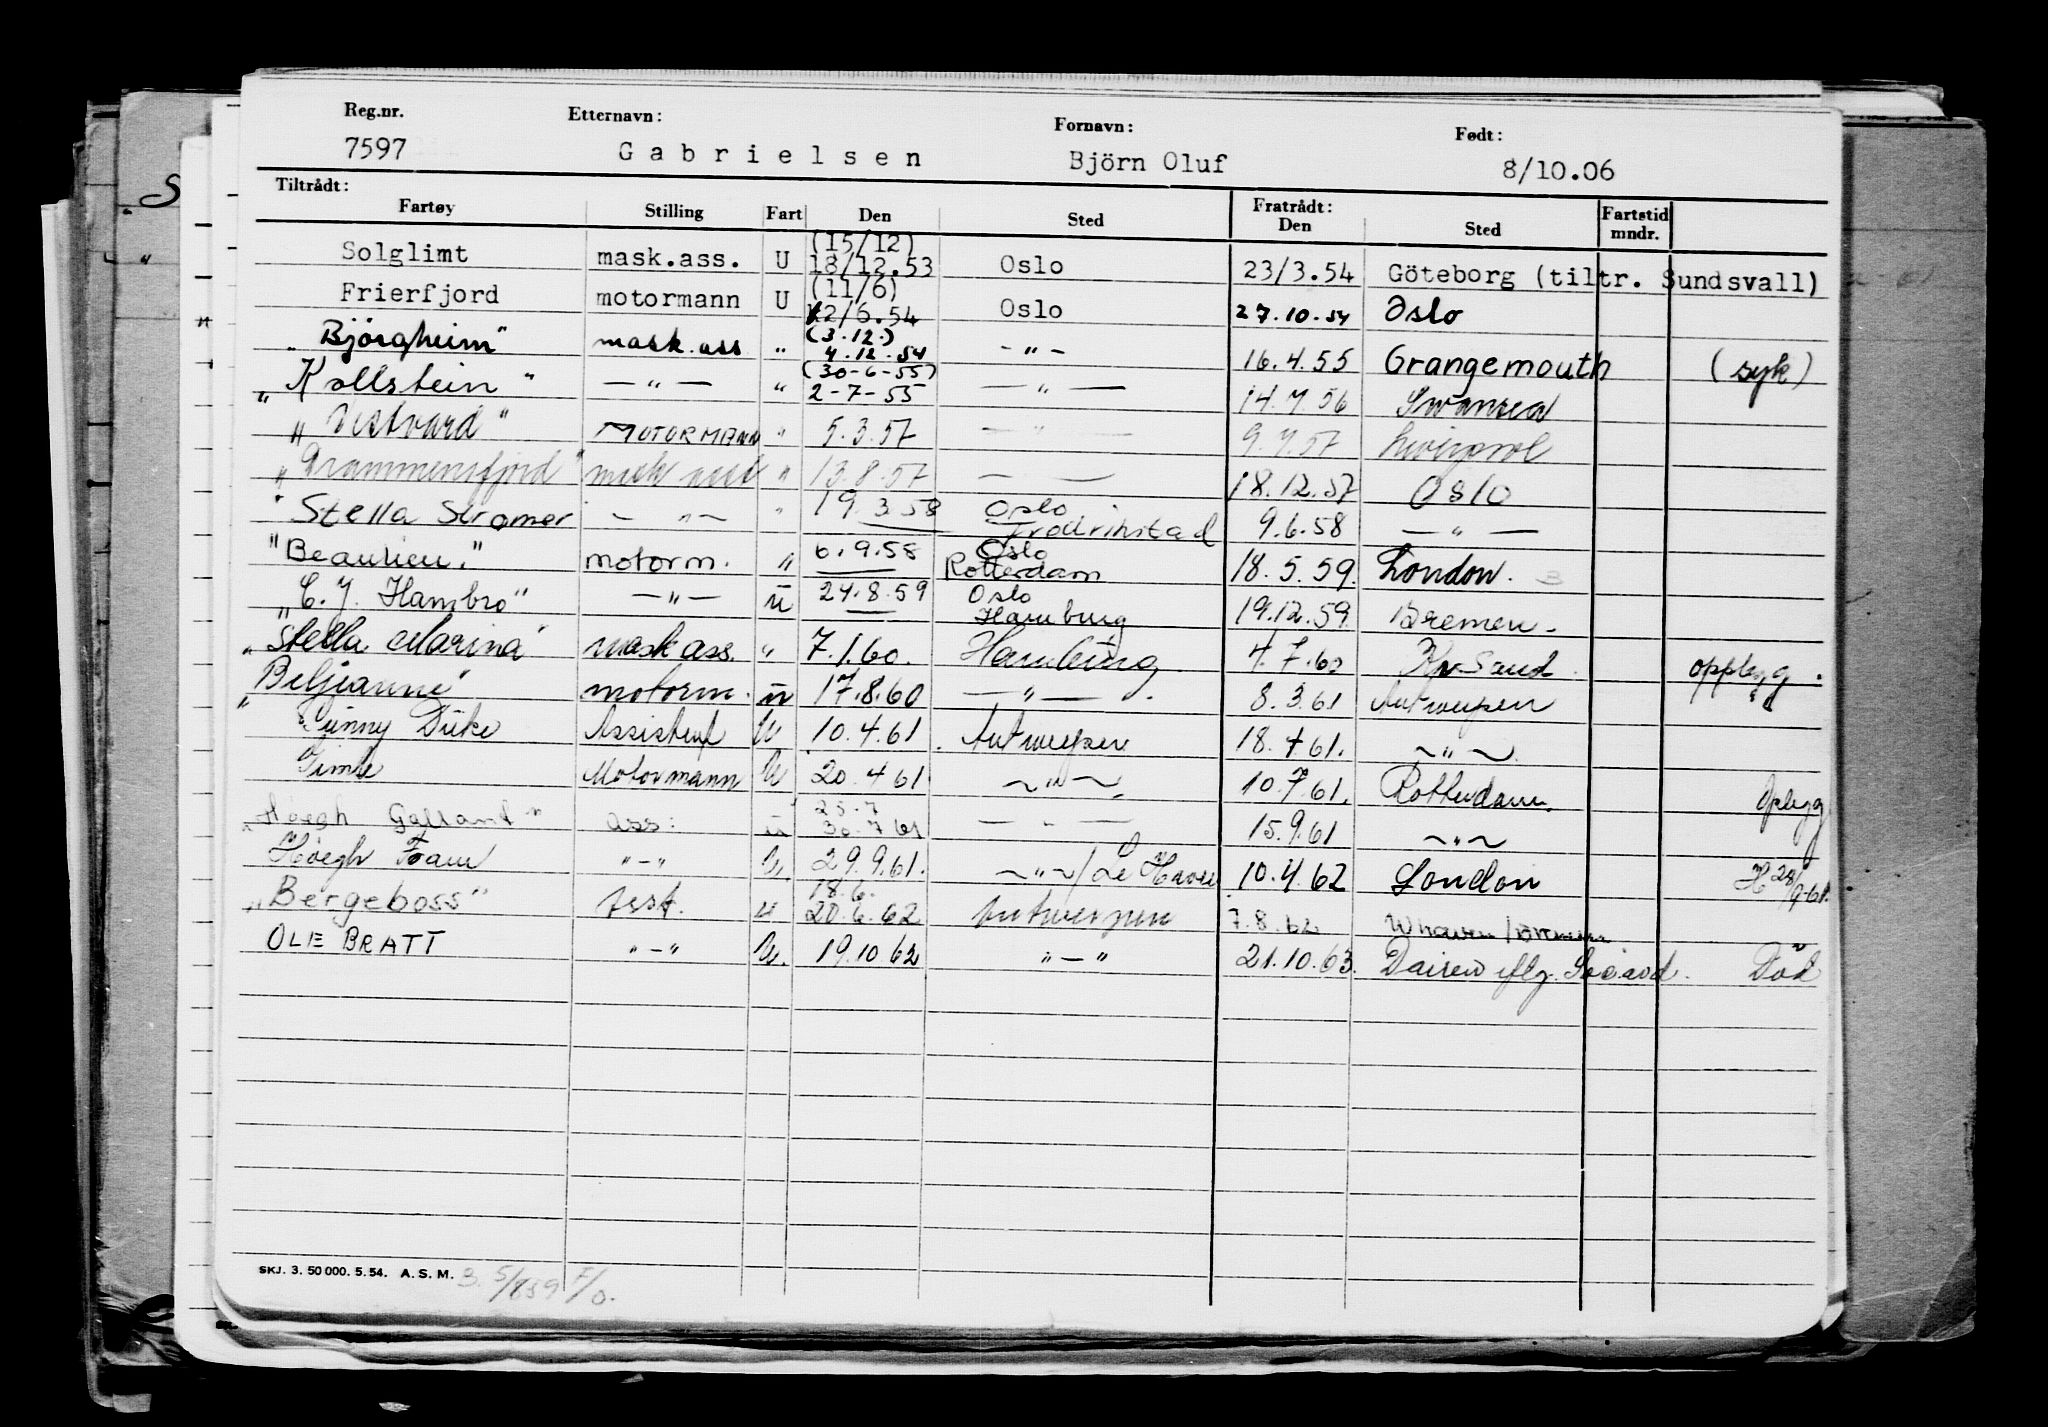 Reg.nr. Etternavn: Fornavn: Født:
7597 Gabrielsen Björn Oluf 8/10.06
Tiltrådt: Fratrådt:
Fartøy Stilling Fart Den Sted Den Sted Fartstid mndr.
Solglimt mask.ass. U (15/12) 18/12.53 Oslo 23/3.54 Göteborg (tiltr. Sundsvall)
Frierfjord motormann U (11/6) 12/6.54 Oslo 27.10.54 Oslo
"Björgheim" mask.ass " (3.12.) 4.12.54 - " - 16.4.55 Grangemouth (syk)
"Kollstein" — " — " (30-6-55) 2-7-55 — " — 14.7.56 Swansea
"Vestvard" MOTORMANN " 5.3.57 — " — 9.7.57 Liverpool
"Drammensfjord" mask asst " 13.8.57 — — 18.12.57 Oslo
"Stella Stromer - " - " 19.3.58 Oslo Fredrikstad 9.6.58 — " —
"Beaulieu." motorm. " 6.9.58 Oslo Rotterdam 18.5.59. London.
"C. J. Hambro" — " — u 24.8.59 Oslo Hamburg 19.12.59 Bremen.
"Stella Marina" mask ass. " 7.1.60. Hamburg 4.7.60 Kr. Sand. opplegg.
"Beljeanne" motorm. u 17.8.60 — " — . 8.3.61 Antwerpen
Gunny Duke Assistent U 10.4.61. Antwerpen 18.4.61. ~ " ~
Gimle Motormann U 20.4.61 ~ " ~ 10.7.61. Rotterdam. Oplegg
"Høegh Gallant" ass: u 28.7 30.7.61 — " — 15.9.61 ~ " ~
Høegh Foam " - " U. 29.9.61. ~ " ~ / Le Havre 10.4.62 London H 28/9-61.
"Bergeboss" Asst. u 18.6. 20.6.62 Antwerpen 7.8.62 Whaven / Bremen
OLE BRATT " - " U. 19.10.62 " - " 21.10.63. Dairen Død
SKJ. 3. 50 000. 5. 54. A. S. M. B. 5/859 F/o.